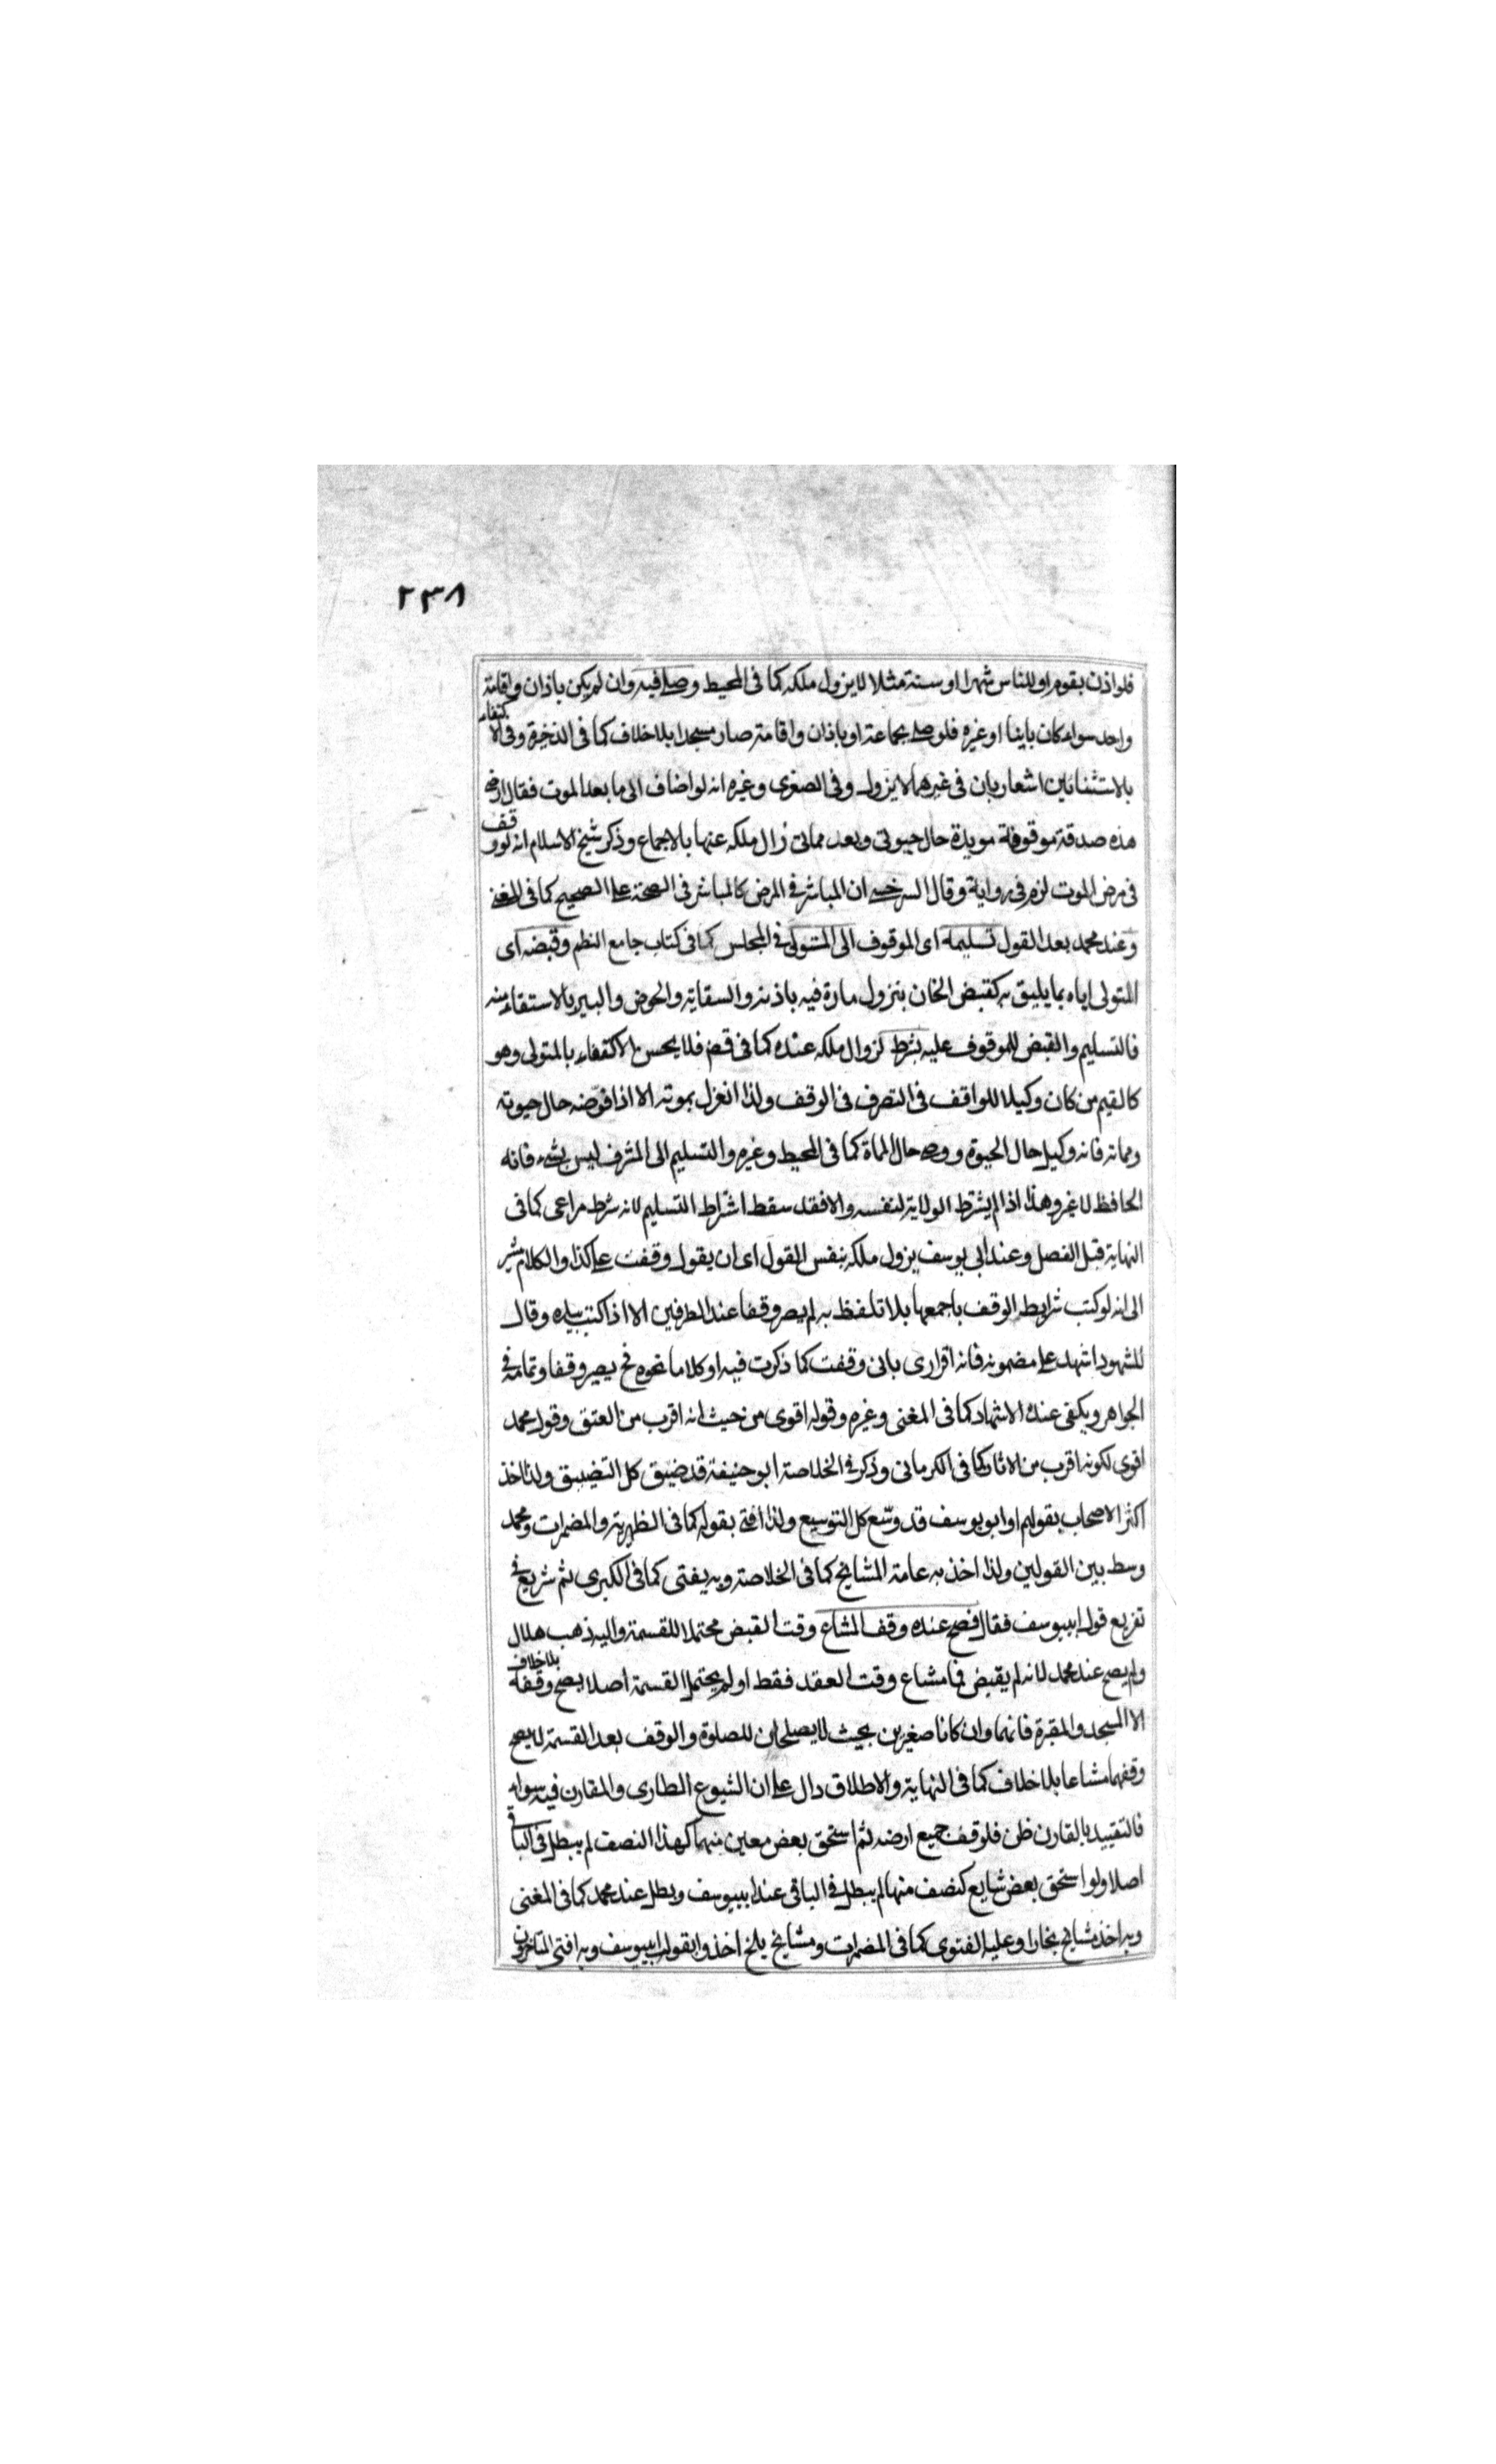 ٢٣٨
فلو اذن بقوم او للناس شهرا او سنة مثلا لا يزول ملكه كما فى المحيط وصلى فيه وان لم يكن باذان واقامة
واحد سواء كان بانيا او غيره فلو صلى بجماعة او باذان واقامة صار مسجدا بلا خلاف كما فى الذخيرة وفى الاكتفاء
بالاستثنائين اشعار بان فى غيرهما لا يزول وفى الصغرى وغيره انه لو اضاف الى ما بعد الموت فقال ارضى
هذه صدقة موقوفة موبدة حال حيوتى وبعد مماتى زال ملكه عنها بالاجماع وذكر شيخ الاسلام انه لو وقف
فى مرض الموت لزم فى رواية وقال السرخسى ان المباشر فى المرض كالمباشر فى الصحة على الصحيح كما فى المغنى
وعند محمد بعد القول تسليمه اى الموقوف الى المتولى فى المجلس كما فى كتاب جامع النظم وقبضه اى
المتولى اياه بما يليق به كقبض الخان بنزول مارة فيه باذنه والسقاية والحوض والبير بالاستقاء منه
فالتسليم والقبض للموقوف عليه شرط لزوال ملكه عنده كما فى قض فلا يحسن الاكتفاء بالمتولى وهو
كالقيم من كان وكيلا للواقف فى التصرف فى الوقف ولذا انعزل بموته الا اذا فوضه حال حيوته
ومماته فانه وكيل حال الحيوة ووصى حال المماة كما فى المحيط وغيره والتسليم الى المشرف ليس بشىء فانه
الحافظ لا غير وهذا اذا لم يشترط الولاية لنفسه والا فقد سقط اشتراط التسليم لانه شرط مراعى كما فى
النهاية قبل الفصل وعند ابى يوسف يزول ملكه بنفس القول اى ان يقول وقفت على كذا والكلام مشير
الى انه لو كتب شرايط الوقف باجمعها بلا تلفظ به لم يصر وقفا عند الطرفين الا اذا كتب بيده وقال
للشهود اشهد على مضمونه فانه اقرارى بانى وقفت كما ذكرت فيه او كلاما نحوه فح يصير وقفا وتمامه فى
الجواهر ويكفى عنده الاشهاد كما فى المغنى وغيره وقوله اقوى من حيث انه اقرب من العتق وقول محمد
اقوى لكونه اقرب من الاثار كما فى الكرمانى وذكر فى الخلاصة ابو حنيفة قد ضيق كل التضييق ولذا اخذ
اكثر الاصحاب بقولهما وابو يوسف قد وسع كل التوسيع ولذا افتى بقوله كما فى الظهيرية والمضمرات ومحمد
وسط بين القولين ولذا اخذ به عامة المشايخ كما فى الخلاصة وبه يفتى كما فى الكبرى ثم شريع فى
تفريع قول ابيوسف فقال فصح عنده وقف المشاع وقت القبض محتملا للقسمة واليه ذهب هلال
ولم يصح عند محمد لانه لم يقبض فما مشاع وقت العقد فقط او لم يحتمل القسمة اصلا يصح وقفه بلا خلاف
الا المسجد والمقبرة فانهما وان كانا صغيرين بحيث لا يصلحان للصلوة والوقف بعد القسمة لا يصح
وقفهما مشاعا بلا خلاف كما فى النهاية والاطلاق دال على ان الشيوع الطارى والمقارن فيه سواء
فالتقييد بالمقارن ظن فلو وقف جميع ارضه ثم استحق بعض معين منهما كهذا النصف لم يبطل فى الباقى
اصلا ولو استحق بعض شايع كنصف منها لم يبطل فى الباقى عند ابيوسف وبطل عند محمد كما فى المغنى
وبه اخذ مشايخ بخارا وعليه الفتوى كما فى المضمرات ومشايخ بلخ اخذوا بقول ابيوسف وبه افتى المتاخرون